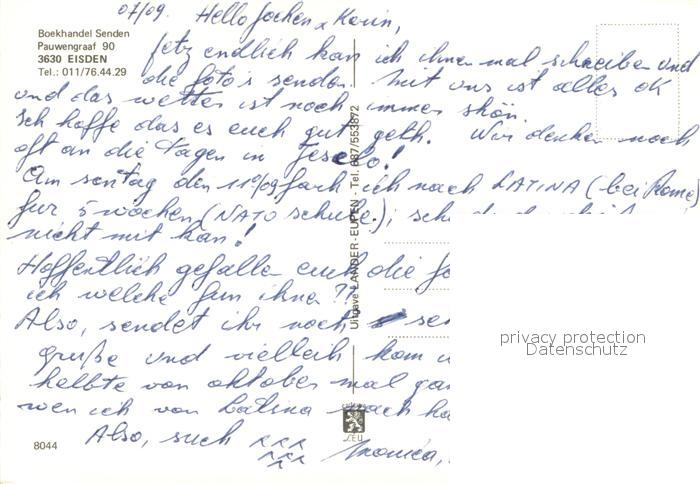 07/09. Hello Jochen + Karin,
Boekhandel Senden
Pauwengraaf 90
3630 EISDEN
Tel.: 011/76.44.29
jetz endlich kan ich ihnen mal schreiben und
die foto's senden. Mit uns ist alles ok
und das wetter ist noch immer shön.
Ich hoffe das es euch gut geth. Wir denken noch
oft an die tagen in Jesolo!
Am sontag den 11°/09 fach ich nach LATINA (bei Rome)
fur 5 wochen (NATO schule);
nicht mit kan!
Hoffentlich gefallen euch die fo
ich welche fun ihne??
Also, sendet ihr noch
gruße und vielleich kom
helbte von oktober mal
wen ich von Latina nach
Also, such xxx
xxx Monica,
Uitgave LANDER - EUPEN - Tel. 087/553872
8044
privacy protection
Datenschutz